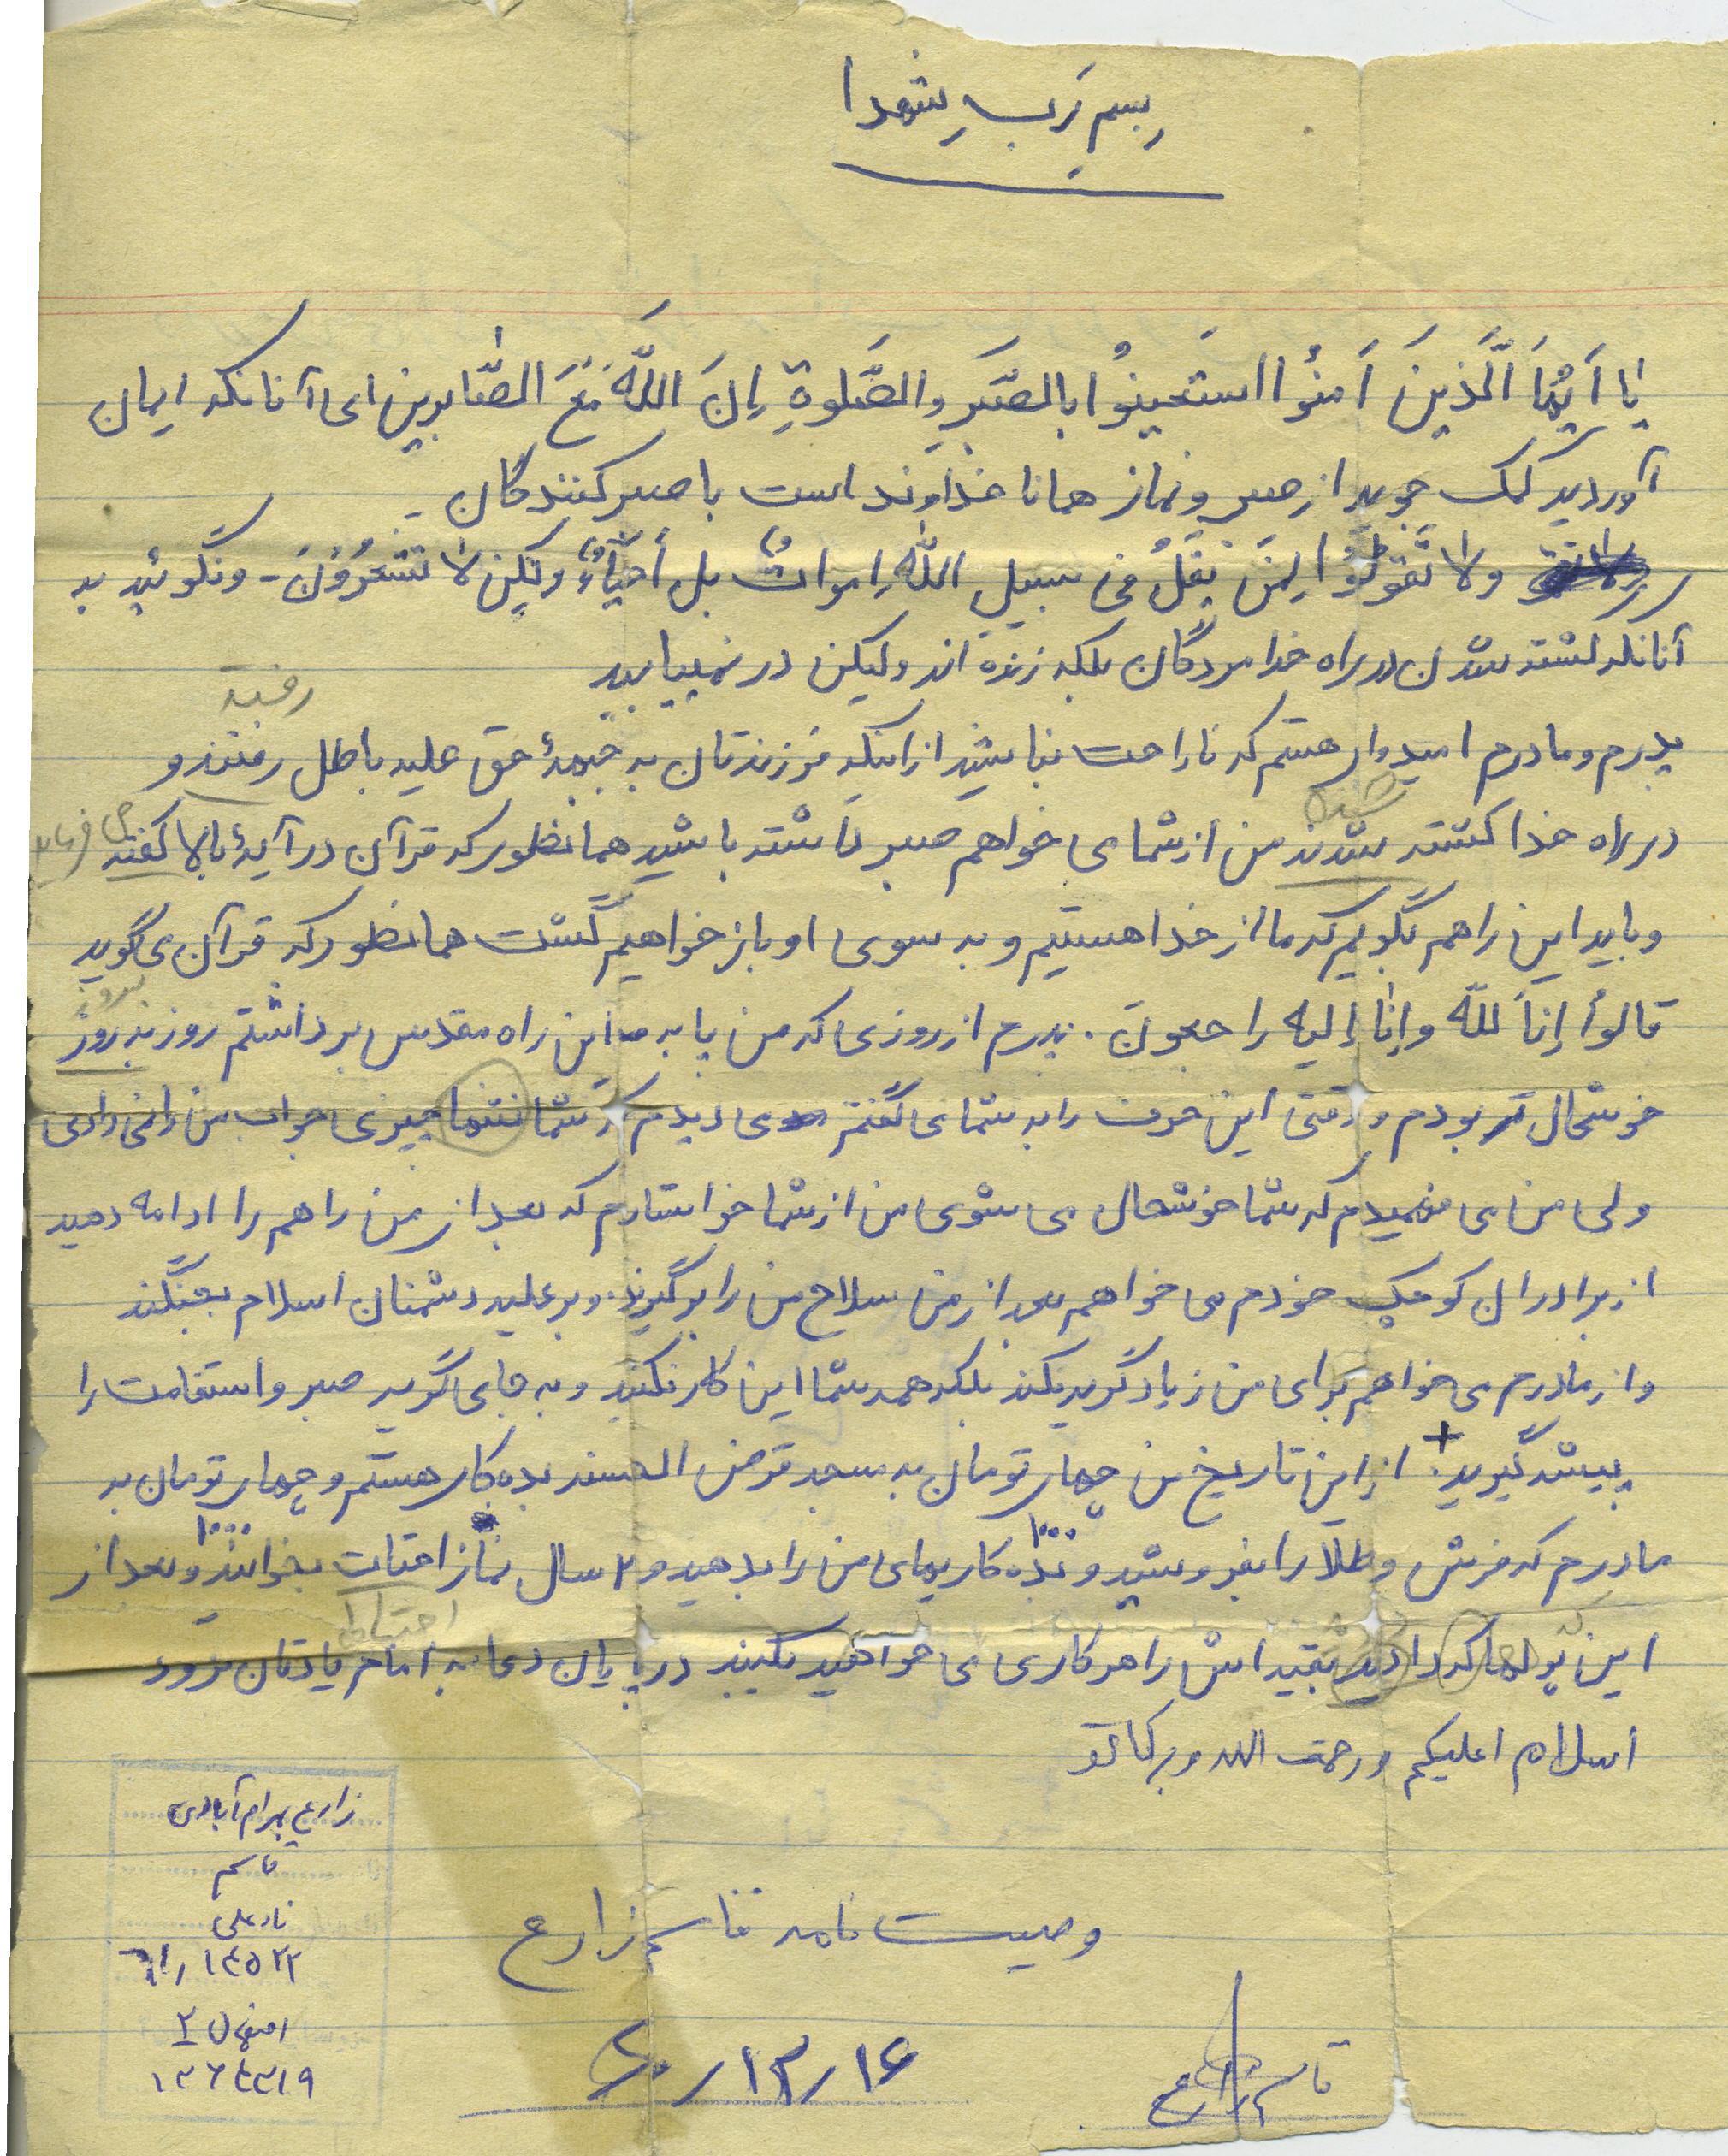 بسم رب شهدا
یا اَیُّهَا الَّذینَ اَمنُوا استَعینوُا بالصَّبرِ والصَّلوةِ اِنَ اللّهَ مَعَ الصّابرین ای آنانکه ایمان
آوردید کمک جویید از صبر و نماز همانا خداوند است با صبر کنندگان
ولا تَقولُوُا لِمَن یقتَلُ فی سبیلِ اللّهِ اموات بل اَحیآءٌ ولکِن لا تشعُروُنَ - ونگوئید به
آنانکه کشته شدن در راه خدا مردگان بلکه زنده اند ولیکن در نمییابید
رفته
پدرم ومادرم امیدوار هستم که ناراحت نباشید از اینکه فرزندتان به جبههٔ حق علیه باطل رفتند و
شده
در راه خدا کشته شدند من از شما می خواهم صبر داشته باشید همانطور که قرآن در آیهٔ بالا گفته می فرماید
وباید این را هم بگویم که ما از خدا هستیم و به سوی او باز خواهیم گشت همانطور که قرآن می گوید
قالوُا إناَ للّه وإنّا إلیه راجعونَ . پدرم از روزی که من پا به این راه مقدس برداشتم روز به روز بروز
خوشحال تر بودم و وقتی این حرف را به شما می گفتم می دیدم که شما نتنها چیزی جواب من را نمی دادی
ولی من می فهمیدم که شما خوشحال می شوی من از شما خواستارم که بعد از من راهم را ادامه دهید
از برادران کوچک خودم می خواهم بعد از من سلاح من را برگیرند. و بر علیه دشمنان اسلام بجنگند
و از مادرم می خواهم برای من زیاد گریه نکند بلکه همه شما این کار نکنید و به جای گریه صبر و استقامت را
پیشه گیرید. + از این تاریخ من چهار تومان به مسجد قرض الحسنه بده کار هستم و چهار تومان به
مادرم که فرش و طلا را بفروشید و بده کاریهای من را بدهید و ۲ سال نماز احتات بخوانند و بعد از
احتیاط
این پولها که دادید بقیه اش را هر کاری می خواهید بکنید در پایان دعا به امام یادتان نرود
اسلام اعلیکم ورحمت الله وبرکاتو
زارع بهرام آبادی
قاسم
نادعلی
۶۱٫۱۴۵۲۲
اصفهان ۲
۱۳۶۴۳۱۹
وصیت نامه قاسم زارع
۶۰٫۱۲٫۱۶
قاسم زارع